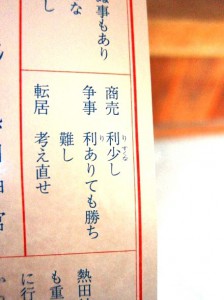 事もあり
な
し
商売 利少し
争事 利ありても勝ち
難し
転居 考え直せ
熱田
も重
に行